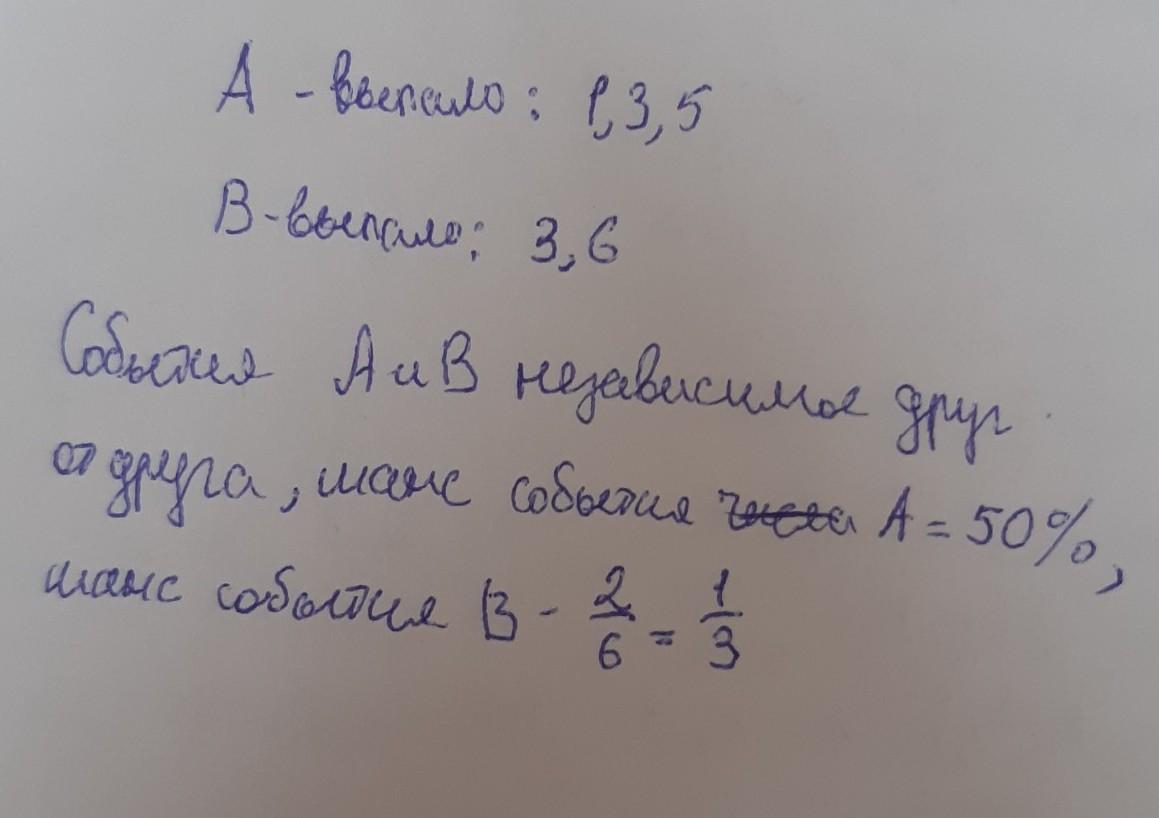 А - выпало: 1,3,5
В-выпало: 3,6
События А и В независимое друг
от друга, шанс события А = 50%,
шанс события В - 2/6 = 1/3